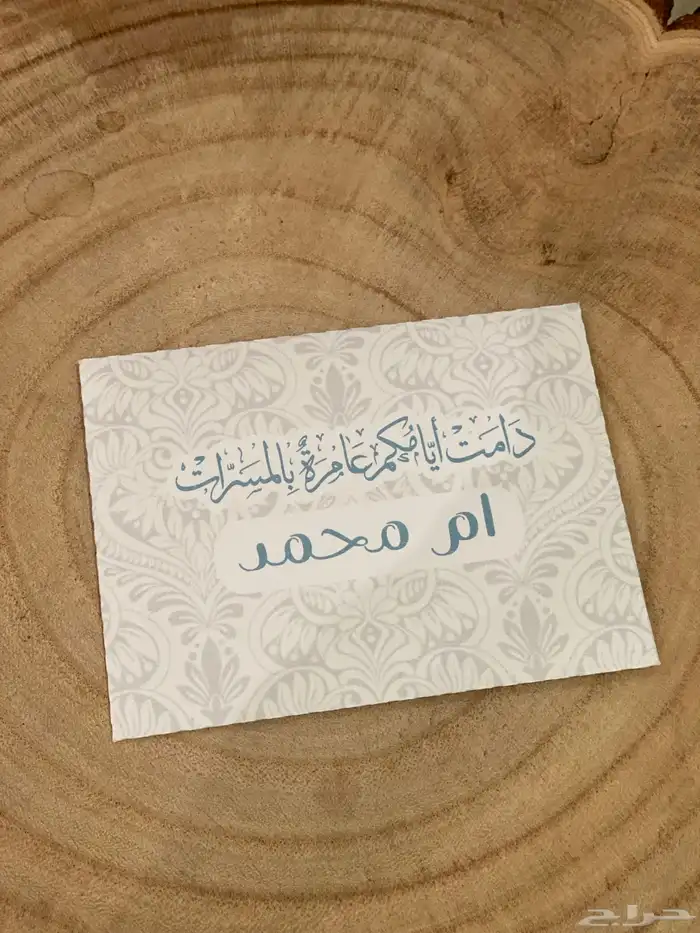 دَامَتْ أيَّامُكم عَامِرَةٌ بِالمَسَرَّات
ام محمد
حراج